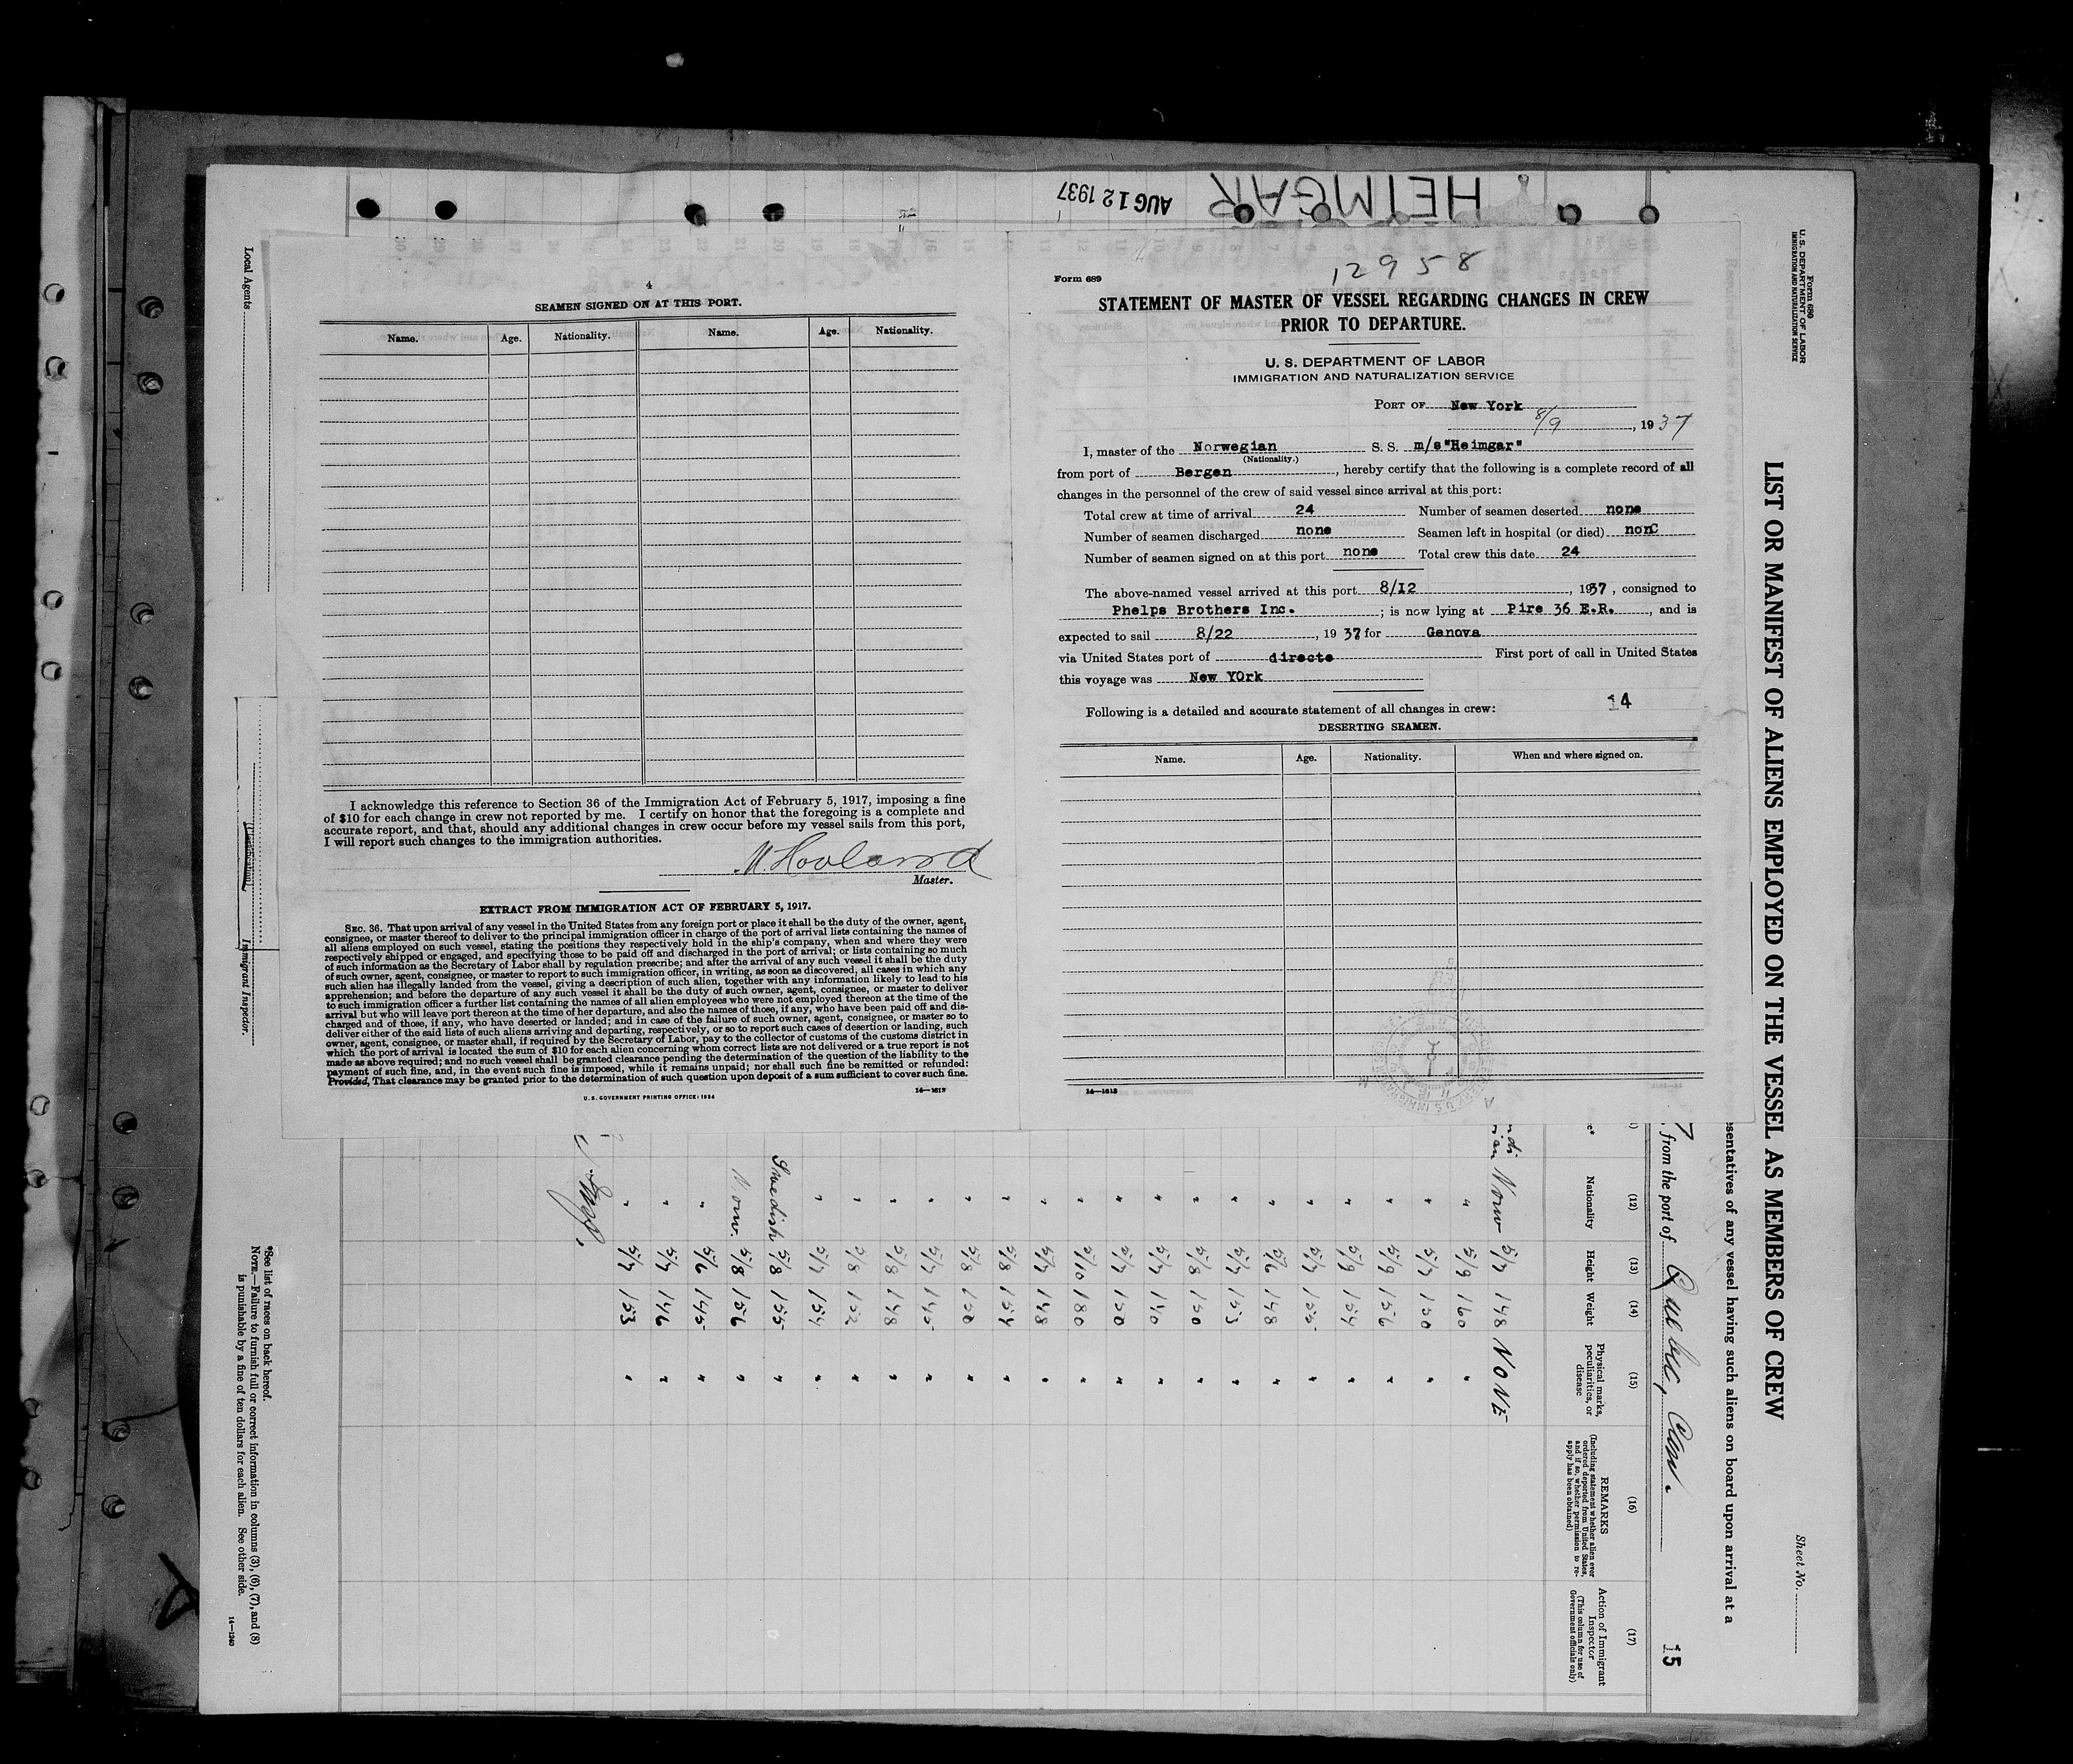 HEIMGAR
AUG 12 1937
4
SEAMEN SIGNED ON AT THIS PORT.
Name. Age. Nationality. Name. Age. Nationality.
I acknowledge this reference to Section 36 of the Immigration Act of February 5, 1917, imposing a fine
of $10 for each change in crew not reported by me. I certify on honor that the foregoing is a complete and
accurate report, and that, should any additional changes in crew occur before my vessel sails from this port,
I will report such changes to the immigration authorities.
M. Hovland
Master.
EXTRACT FROM IMMIGRATION ACT OF FEBRUARY 5, 1917.
SEC. 36. That upon arrival of any vessel in the United States from any foreign port or place it shall be the duty of the owner, agent,
consignee, or master thereof to deliver to the principal immigration officer in charge of the port of arrival lists containing the names of
all aliens employed on such vessel, stating the positions they respectively hold in the ship's company, when and where they were
respectively shipped or engaged, and specifying those to be paid off and discharged in the port of arrival; or lists containing so much
of such information as the Secretary of Labor shall by regulation prescribe; and after the arrival of any such vessel it shall be the duty
of such owner, agent, consignee, or master to report to such immigration officer, in writing, as soon as discovered, all cases in which any
such alien has illegally landed from the vessel, giving a description of such alien, together with any information likely to lead to his
apprehension; and before the departure of any such vessel it shall be the duty of such owner, agent, consignee, or master to deliver
to such immigration officer a further list containing the names of all alien employees who were not employed thereon at the time of the
arrival but who will leave port thereon at the time of her departure, and also the names of those, if any, who have been paid off and dis-
charged and of those, if any, who have deserted or landed; and in case of the failure of such owner, agent, consignee, or master so to
deliver either of the said lists of such aliens arriving and departing, respectively, or so to report such cases of desertion or landing, such
owner, agent, consignee, or master shall, if required by the Secretary of Labor, pay to the collector of customs of the customs district in
which the port of arrival is located the sum of $10 for each alien concerning whom correct lists are not delivered or a true report is not
made as above required; and no such vessel shall be granted clearance pending the determination of the question of the liability to the
payment of such fine, and, in the event such fine is imposed, while it remains unpaid; nor shall such fine be remitted or refunded:
Provided, That clearance may be granted prior to the determination of such question upon deposit of a sum sufficient to cover such fine.
U. S. GOVERNMENT PRINTING OFFICE: 1934
14—1613
12958
Form 689
STATEMENT OF MASTER OF VESSEL REGARDING CHANGES IN CREW
PRIOR TO DEPARTURE.
U. S. DEPARTMENT OF LABOR
IMMIGRATION AND NATURALIZATION SERVICE
PORT OF New York
8/9, 1937
I, master of the Norwegian S. S. m/s"Heimgar"
(Nationality.)
from port of Bergen, hereby certify that the following is a complete record of all
changes in the personnel of the crew of said vessel since arrival at this port:
Total crew at time of arrival 24 Number of seamen deserted none
Number of seamen discharged none Seamen left in hospital (or died) nonC
Number of seamen signed on at this port none Total crew this date 24
The above-named vessel arrived at this port 8/12, 1937, consigned to
Phelps Brothers Inc.; is now lying at Pire 36 E.R., and is
expected to sail 8/22, 1937 for Genova
via United States port of directe First port of call in United States
this voyage was New YOrk
14
Following is a detailed and accurate statement of all changes in crew:
DESERTING SEAMEN.
Name. Age. Nationality. When and where signed on.
14—1613
Form 680
U. S. DEPARTMENT OF LABOR
IMMIGRATION AND NATURALIZATION SERVICE
Sheet No.
LIST OR MANIFEST OF ALIENS EMPLOYED ON THE VESSEL AS MEMBERS OF CREW
sentatives of any vessel having such aliens on board upon arrival at a
, from the port of Quebec, Can.
15
(12) (13) (14) (15) (16) (17)
Nationality Height Weight Physical marks, peculiarities, or disease
REMARKS
(Including statement whether alien ever ordered deported from United States, and if so, whether permission to re-apply has been obtained)
Action of Immigrant Inspector
(This column for use of Government officials only)
Norw 5/7 148 NONE
" 5/9 160 "
" 5/7 150 "
" 5/9 156 "
" 5/9 154 "
" 5/7 155 "
" 5/6 148 "
" 5/7 153 "
" 5/8 150 "
" 5/7 140 "
" 5/7 150 "
" 5/10 180 "
" 5/7 148 "
" 5/8 154 "
" 5/8 150 "
" 5/7 145 "
" 5/8 148 "
" 5/8 152 "
" 5/7 154 "
Swedish 5/8 155 "
Norw. 5/8 156 "
" 5/6 145 "
" 5/7 146 "
" 5/7 153 "
Local Agents
Immigrant Inspector.
*See list of races on back hereof.
NOTE.—Failure to furnish full or correct information in columns (3), (6), (7), and (8)
is punishable by a fine of ten dollars for each alien. See other side.
14—1240